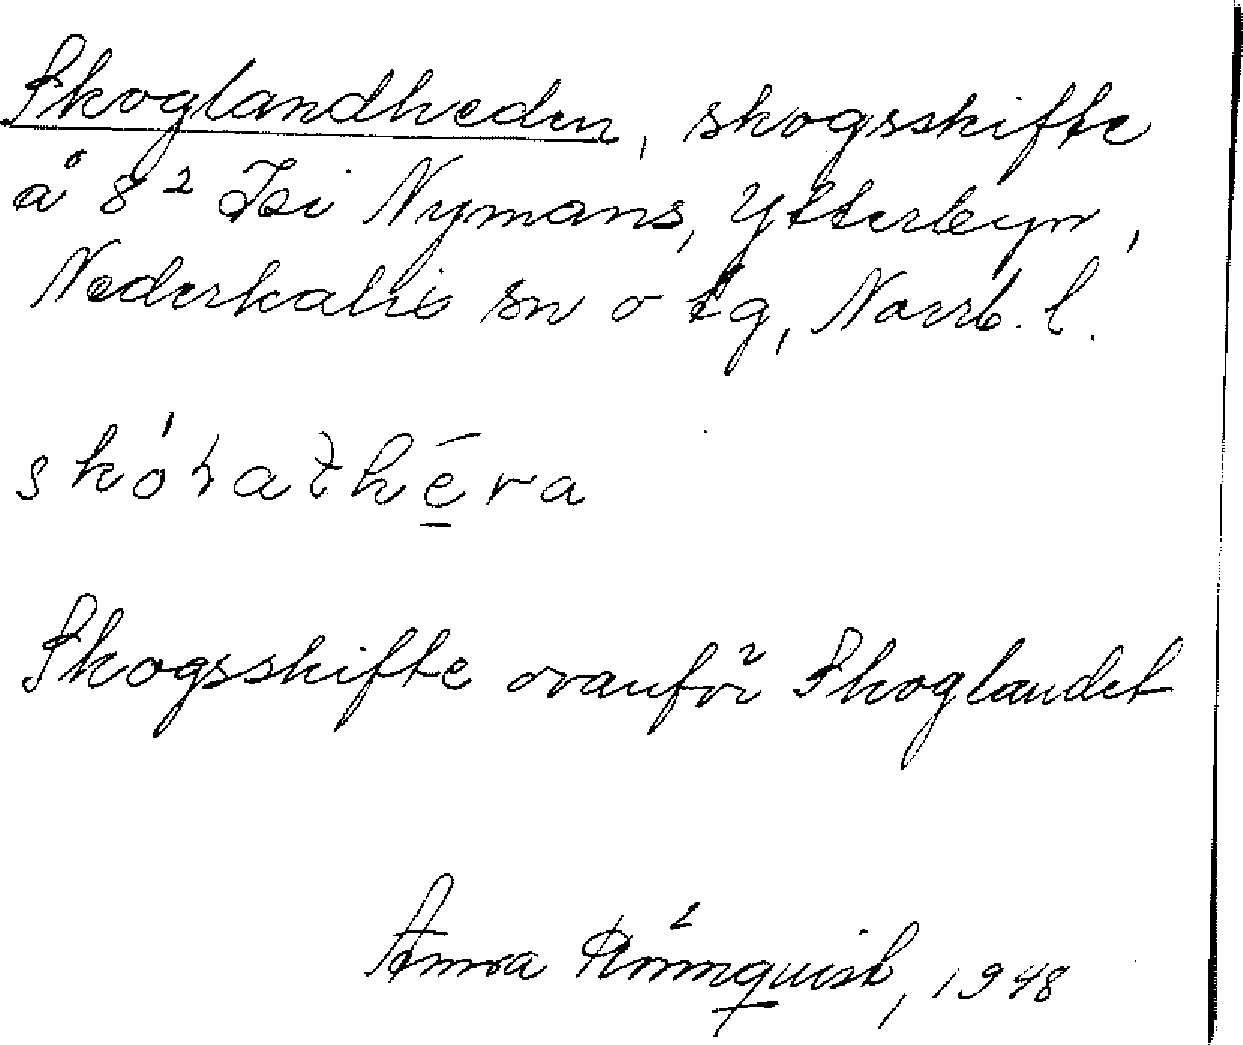 Skoglandheden, skogsskifte
å 8² Isi Nymans, Ytterbyn,
Nederkalix sn o tg, Norrb. l.
Skogsskifte ovanför Skoglandet
Anna Rönnquist, 1948